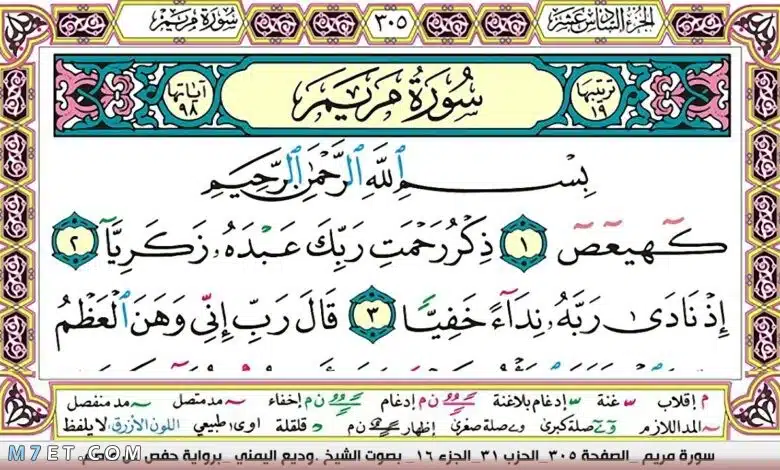 سورة مريم ٣٠٥ الجزء السادس عشر
ترتيبها ١٩ سُورَةُ مَرْيَمَ آياتها ٩٨
بِسْمِ ٱللَّهِ ٱلرَّحْمَٰنِ ٱلرَّحِيمِ
كٓهيعٓصٓ ١ ذِكْرُ رَحْمَتِ رَبِّكَ عَبْدَهُۥ زَكَرِيَّآ ٢
إِذْ نَادَىٰ رَبَّهُۥ نِدَآءً خَفِيًّا ٣ قَالَ رَبِّ إِنِّي وَهَنَ ٱلْعَظْمُ
م إقلاب غنة إدغام بلاغنة ن م إدغام ن م إخفاء مد متصل مد منفصل
المد اللازم صلة كبرى وے صلة صغرى إظهار ن م قلقلة اوى طبيعي اللون الأزرق لا يلفظ
سورة مريم _ الصفحة ٣٠٥ _الحزب ٣١_ الجزء ١٦_ بصوت الشيخ .وديع اليمني _ برواية حفص عن عاصم
M7ET.COM